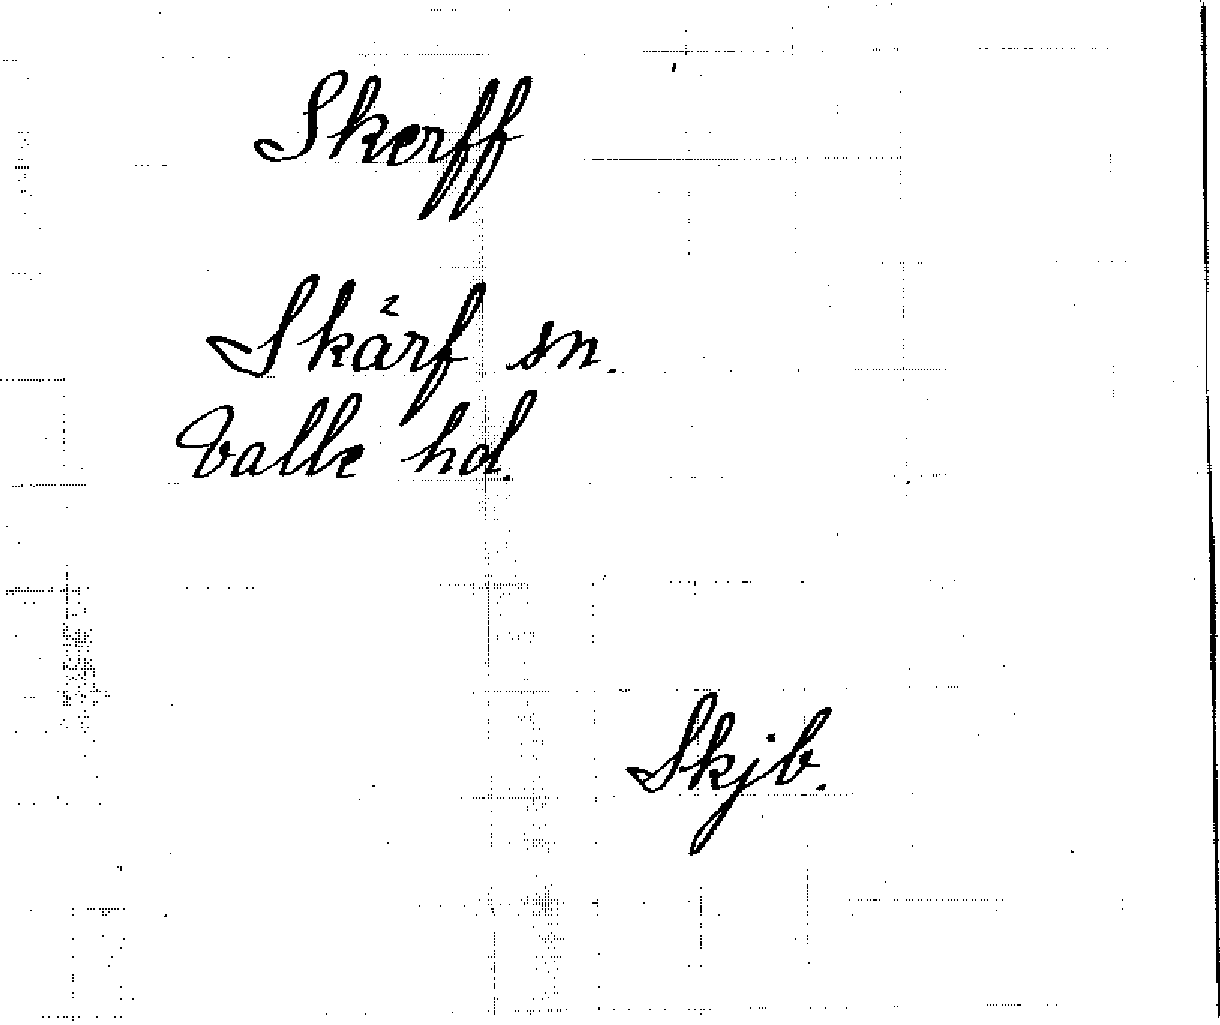 Skerff
Skärf sn.
Valle hd.
Skjb.